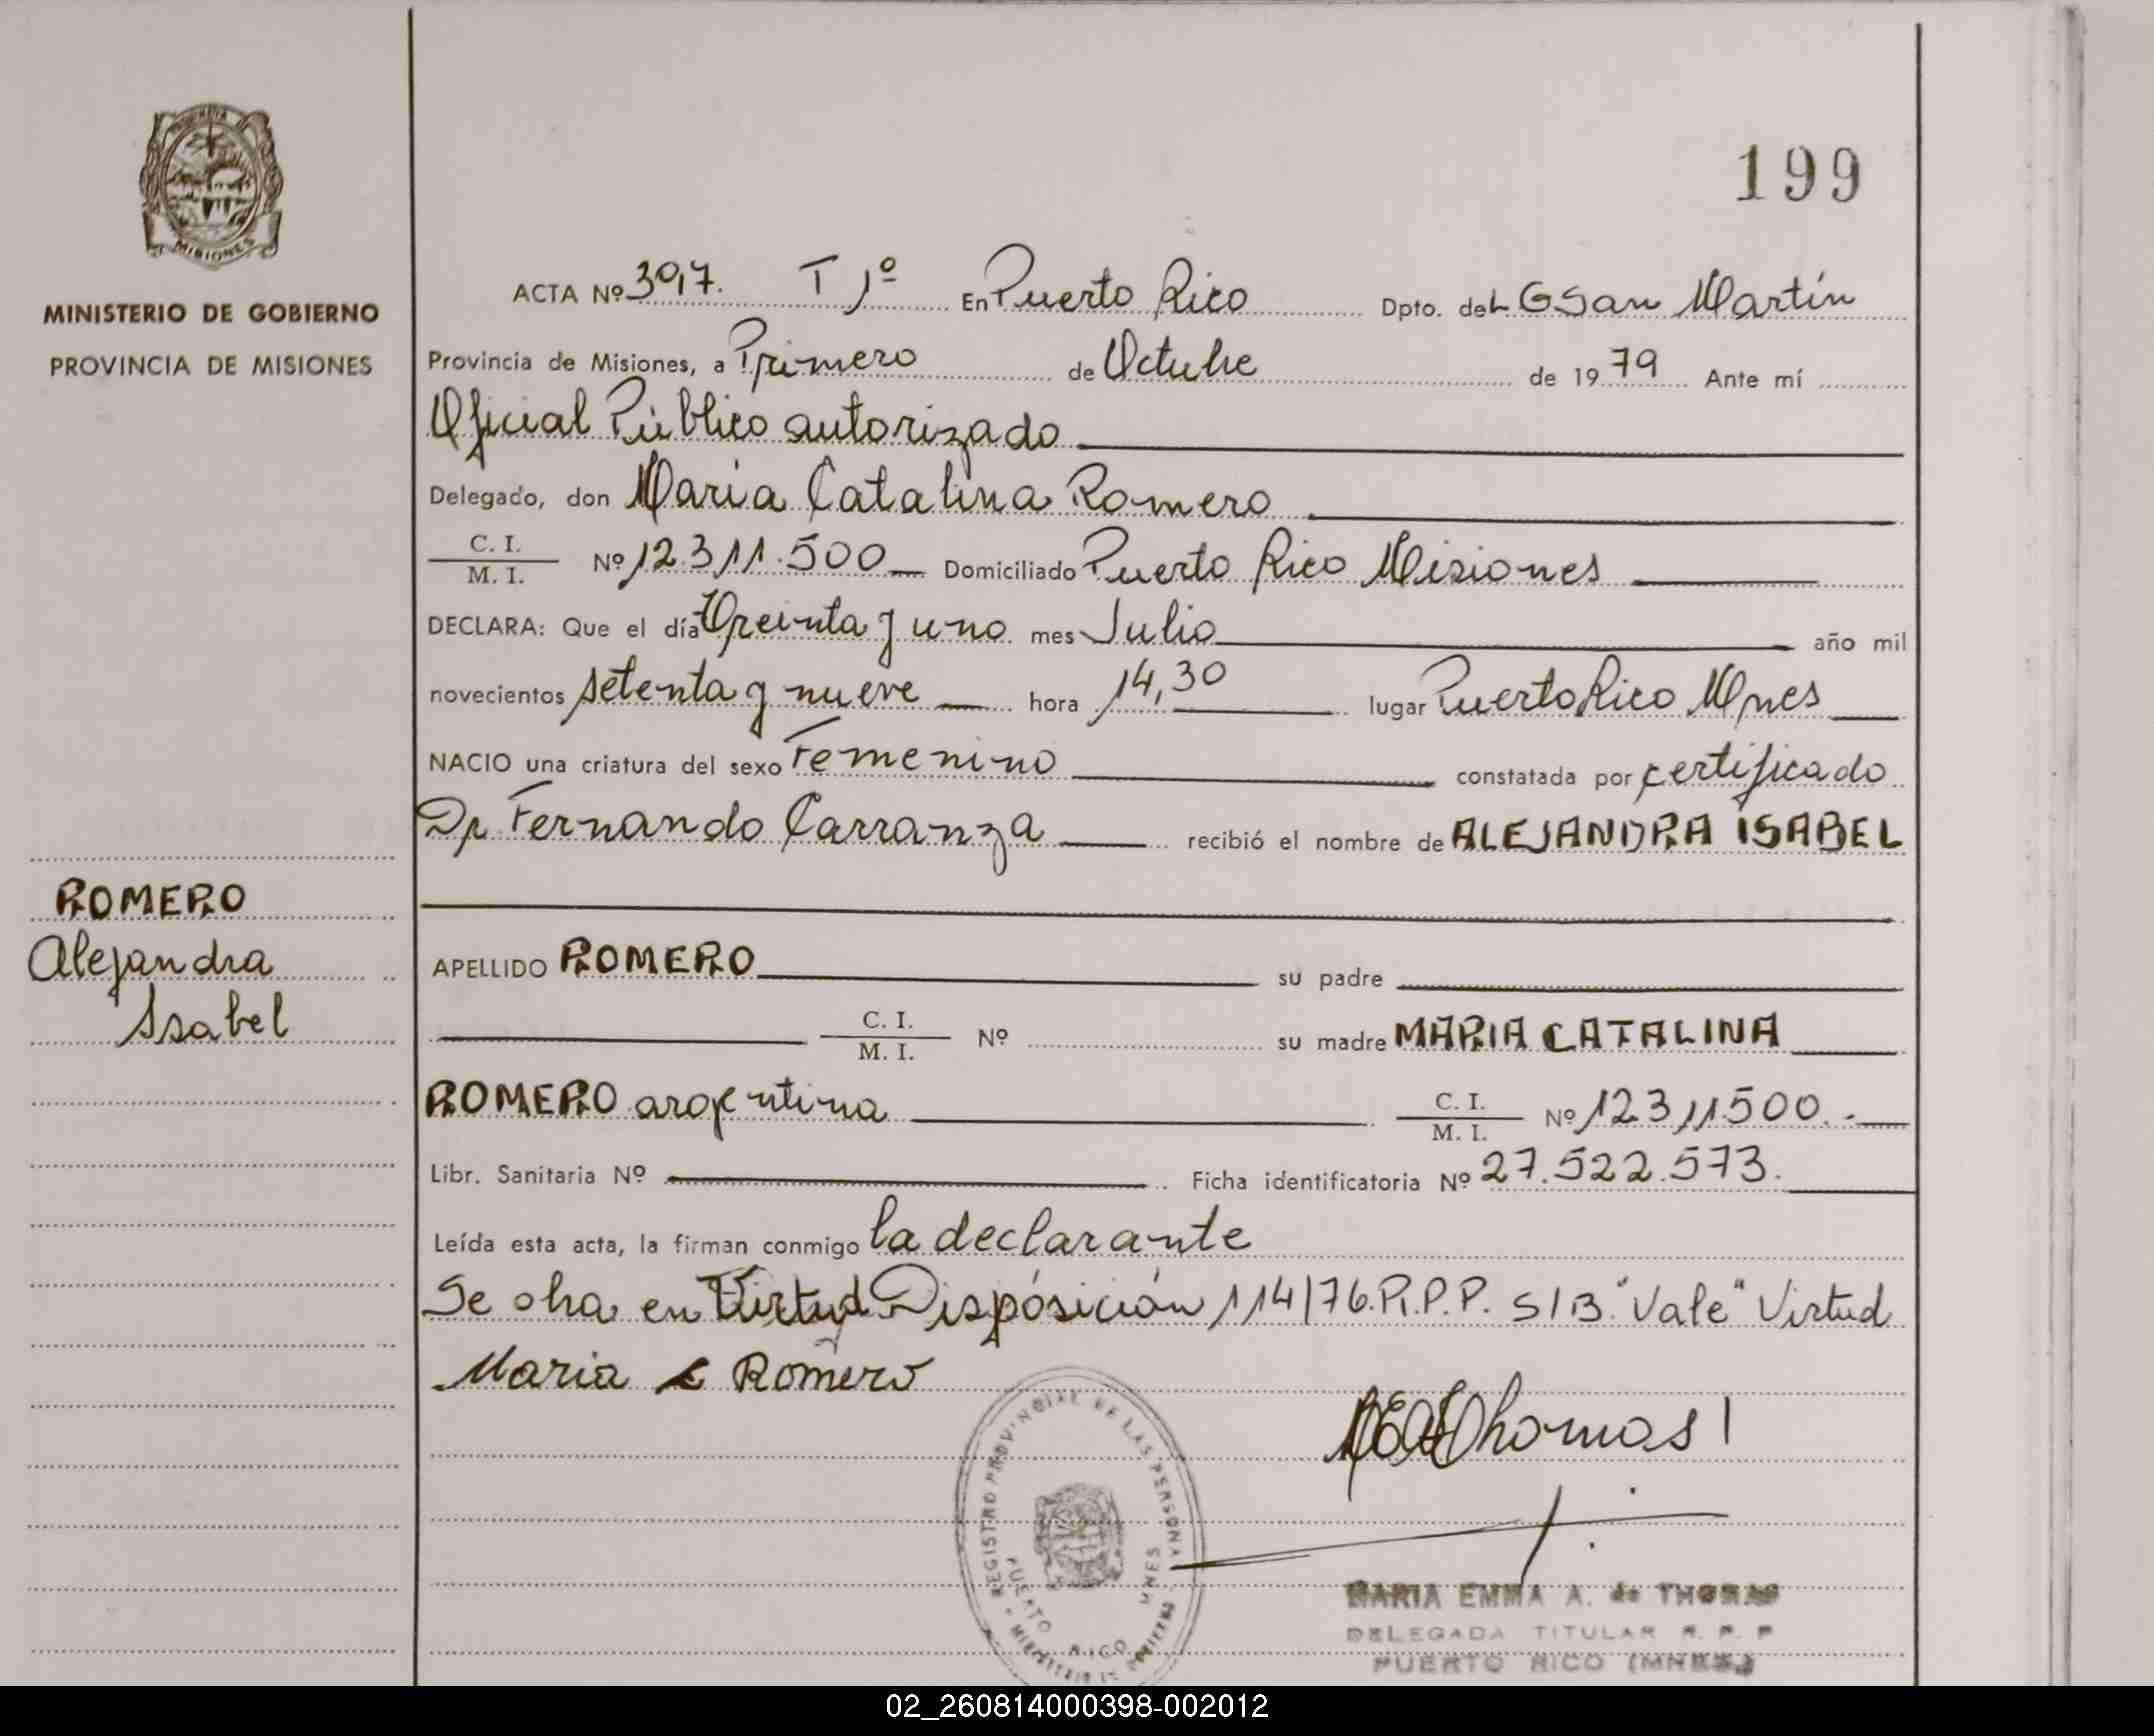 199
MISIONES
MINISTERIO DE GOBIERNO
PROVINCIA DE MISIONES
ROMERO
Alejandra
Isabel
ACTA Nº 397. T 1º En Puerto Rico Dpto. del G San Martín
Provincia de Misiones, a Primero de Octubre de 1979 Ante mí
Oficial Público autorizado
Delegado, don Maria Catalina Romero
C. I. / M. I. Nº 12.311.500 Domiciliado Puerto Rico Misiones
DECLARA: Que el día Treinta y uno mes Julio año mil
novecientos setenta y nueve hora 14,30 lugar Puerto Rico Mnes
NACIO una criatura del sexo Femenino constatada por certificado
Dr Fernando Carranza recibió el nombre de ALEJANDRA ISABEL
APELLIDO ROMERO su padre
C. I. / M. I. Nº su madre MARIA CATALINA
ROMERO argentina C. I. / M. I. Nº 12311500.
Libr. Sanitaria Nº Ficha identificatoria Nº 27.522.573.
Leída esta acta, la firman conmigo la declarante
Se oha en Virtud Disposición 114/76.R.P.P. S/B. "Vale" Virtud
Maria C Romero
Thomas
REGISTRO PROVINCIAL DE LAS PERSONAS
PUERTO RICO MNES
MARIA EMMA A. de THOMAS
DELEGADA TITULAR R. P. P
PUERTO RICO (MNES.)
02_260814000398-002012